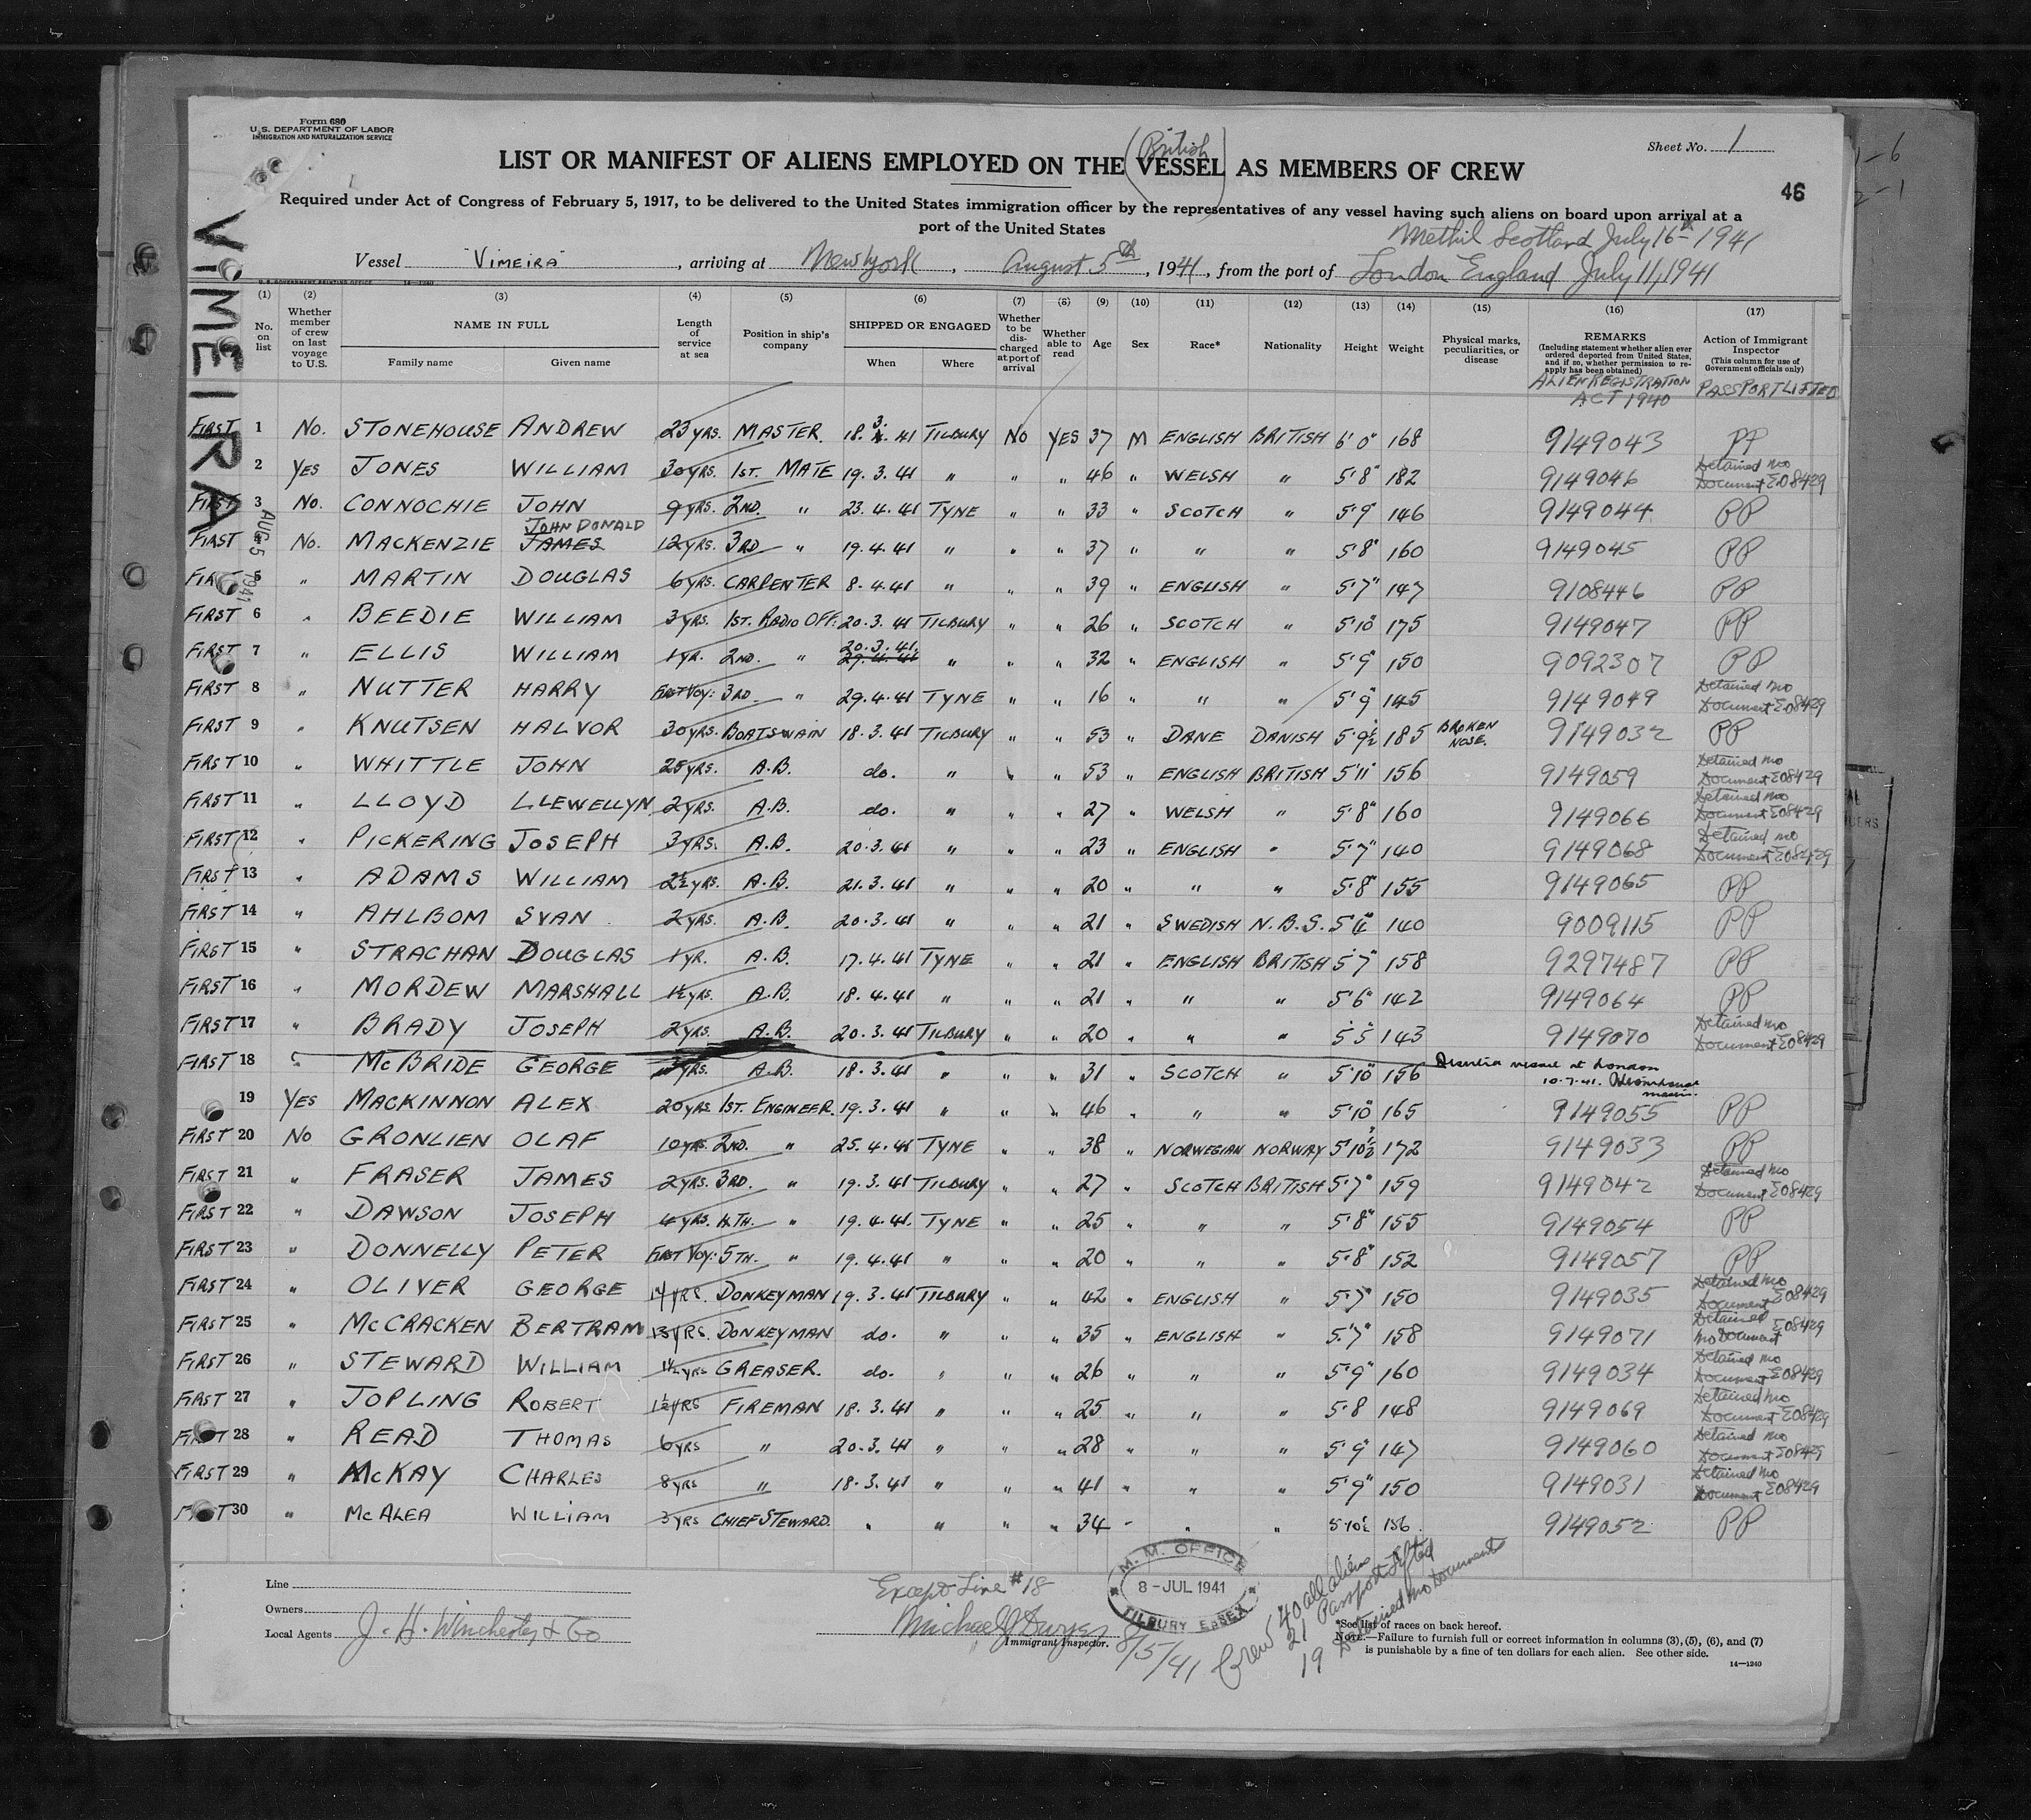 Form 680
U.S. DEPARTMENT OF LABOR
IMMIGRATION AND NATURALIZATION SERVICE
Sheet No. 1
(British)
LIST OR MANIFEST OF ALIENS EMPLOYED ON THE VESSEL AS MEMBERS OF CREW
46
Required under Act of Congress of February 5, 1917, to be delivered to the United States immigration officer by the representatives of any vessel having such aliens on board upon arrival at a
port of the United States
Methil Scotland July 16th 1941
Vessel "VIMEIRA", arriving at New York, August 5th, 1941, from the port of London England July 11, 1941
U.S. GOVERNMENT PRINTING OFFICE 14—1240
VIMEIRA
AUG 5 1941
(1) (2) (3) (4) (5) (6) (7) (8) (9) (10) (11) (12) (13) (14) (15) (16) (17)
No. on list
Whether member of crew on last voyage to U.S.
NAME IN FULL
Family name Given name
Length of service at sea
Position in ship's company
SHIPPED OR ENGAGED
When Where
Whether to be discharged at port of arrival
Whether able to read
Age
Sex
Race*
Nationality
Height
Weight
Physical marks, peculiarities, or disease
REMARKS
(Including statement whether alien ever ordered deported from United States, and if so, whether permission to re-apply has been obtained)
ALIEN REGISTRATION ACT 1940
Action of Immigrant Inspector
(This column for use of Government officials only)
PASSPORT LIFTED
FIRST 1 No. STONEHOUSE ANDREW 23 YRS. MASTER. 18.3.41 TILBURY No YES 37 M ENGLISH BRITISH 6'0" 168 9149043 PP
2 YES JONES WILLIAM 30 YRS. 1ST. MATE 19.3.41 " " " 46 " WELSH " 5'8" 182 9149046 Detained no Document E08429
FIRST 3 No. CONNOCHIE JOHN 9 YRS. 2ND. " 23.4.41 TYNE " " 33 " SCOTCH " 5'9" 146 9149044 PP
JOHN DONALD
FIRST 4 No. MACKENZIE JAMES 12 YRS. 3RD " 19.4.41 " " " 37 " " " 5'8" 160 9149045 PP
FIRST 5 " MARTIN DOUGLAS 6 YRS. CARPENTER 8.4.41 " " " 39 " ENGLISH " 5'7" 147 9108446 PP
FIRST 6 " BEEDIE WILLIAM 3 YRS. 1ST. RADIO OFF. 20.3.41 TILBURY " " 26 " SCOTCH " 5'10" 175 9149047 PP
FIRST 7 " ELLIS WILLIAM 1 YR. 2ND. " 20.3.41. 29.4.41 " " " 32 " ENGLISH " 5'9" 150 9092307 PP
FIRST 8 " NUTTER HARRY FIRST VOY: 3RD. " 29.4.41 TYNE " " 16 " " " 5'9" 145 9149049 Detained no Document E08429
FIRST 9 " KNUTSEN HALVOR 30 YRS. BOATSWAIN 18.3.41 TILBURY " " 53 " DANE DANISH 5'9½ 185 BROKEN NOSE. 9149032 PP
FIRST 10 " WHITTLE JOHN 25 YRS. A.B. do. " " " 53 " ENGLISH BRITISH 5'11" 156 9149059 Detained no Document E08429
FIRST 11 " LLOYD LLEWELLYN 2 YRS. A.B. do. " " " 27 " WELSH " 5'8" 160 9149066 Detained no Document E08429
FIRST 12 " PICKERING JOSEPH 3 YRS. A.B. 20.3.41 " " " 23 " ENGLISH " 5'7" 140 9149068 Detained no Document E08429
FIRST 13 " ADAMS WILLIAM 2½ YRS. A.B. 21.3.41 " " " 20 " " " 5'8" 155 9149065 PP
FIRST 14 " AHLBOM SVAN 2 YRS. A.B. 20.3.41 " " " 21 " SWEDISH N.B.S. 5'11" 140 9009115 PP
FIRST 15 " STRACHAN DOUGLAS 1 YR. A.B. 17.4.41 TYNE " " 21 " ENGLISH BRITISH 5'7" 158 9297487 PP
FIRST 16 " MORDEW MARSHALL 1½ YRS. A.B. 18.4.41 " " " 21 " " " 5'6" 142 9149064 PP
FIRST 17 " BRADY JOSEPH 2 YRS. A.B. 20.3.41 TILBURY " " 20 " " " 5'5" 143 9149070 Detained no Document E08429
FIRST 18 " McBRIDE GEORGE YRS. A.B. 18.3.41 " " " 31 " SCOTCH " 5'10" 156 vessel at London 10.7.41.
19 YES MACKINNON ALEX 20 YRS. 1ST. ENGINEER. 19.3.41 " " " 46 " " " 5'10" 165 9149055 PP
FIRST 20 No GRONLIEN OLAF 10 YRS. 2ND. " 25.4.41 TYNE " " 38 " NORWEGIAN NORWAY 5'10½" 172 9149033 PP
FIRST 21 " FRASER JAMES 2 YRS. 3RD. " 19.3.41 TILBURY " " 27 " SCOTCH BRITISH 5'7" 159 9149042 Detained no Document E08429
FIRST 22 " DAWSON JOSEPH 4 YRS. 4TH. " 19.4.41. TYNE " " 25 " " " 5'8" 155 9149054 PP
FIRST 23 " DONNELLY PETER FIRST VOY: 5TH. " 19.4.41 " " " 20 " " " 5'8" 152 9149057 PP
FIRST 24 " OLIVER GEORGE 14 YRS. DONKEYMAN 19.3.41 TILBURY " " 42 " ENGLISH " 5'7" 150 9149035 Detained no Document E08429
FIRST 25 " McCRACKEN BERTRAM 13 YRS. DONKEYMAN do. " " " 35 " ENGLISH " 5'7" 158 9149071 Detained no Document E08429
FIRST 26 " STEWARD WILLIAM 1½ YRS GREASER. do. " " " 26 " " " 5'9" 160 9149034 Detained no Document E08429
FIRST 27 " JOPLING ROBERT 1½ YRS FIREMAN 18.3.41 " " " 25 " " " 5'8 148 9149069 Detained no Document E08429
FIRST 28 " READ THOMAS 6 YRS " 20.3.41 " " " 28 " " " 5'9" 147 9149060 Detained no Document E08429
FIRST 29 " McKAY CHARLES 8 YRS " 18.3.41 " " " 41 " " " 5'9" 150 9149031 Detained no Document E08429
FIRST 30 " McALEA WILLIAM 3 YRS CHIEF STEWARD. " " " " 34 " " " 5'10½ 156. 9149052 PP
Line
Owners
Local Agents J. H. Winchester & Co
Except Line #18
Immigrant Inspector.
8/5/41
M. M. OFFICE
8 - JUL 1941
TILBURY ESSEX
Crew 40 all aliens
21 Passport Lifted
19 Detained no Document
*See list of races on back hereof.
NOTE.—Failure to furnish full or correct information in columns (3), (5), (6), and (7)
is punishable by a fine of ten dollars for each alien. See other side.
14—1240